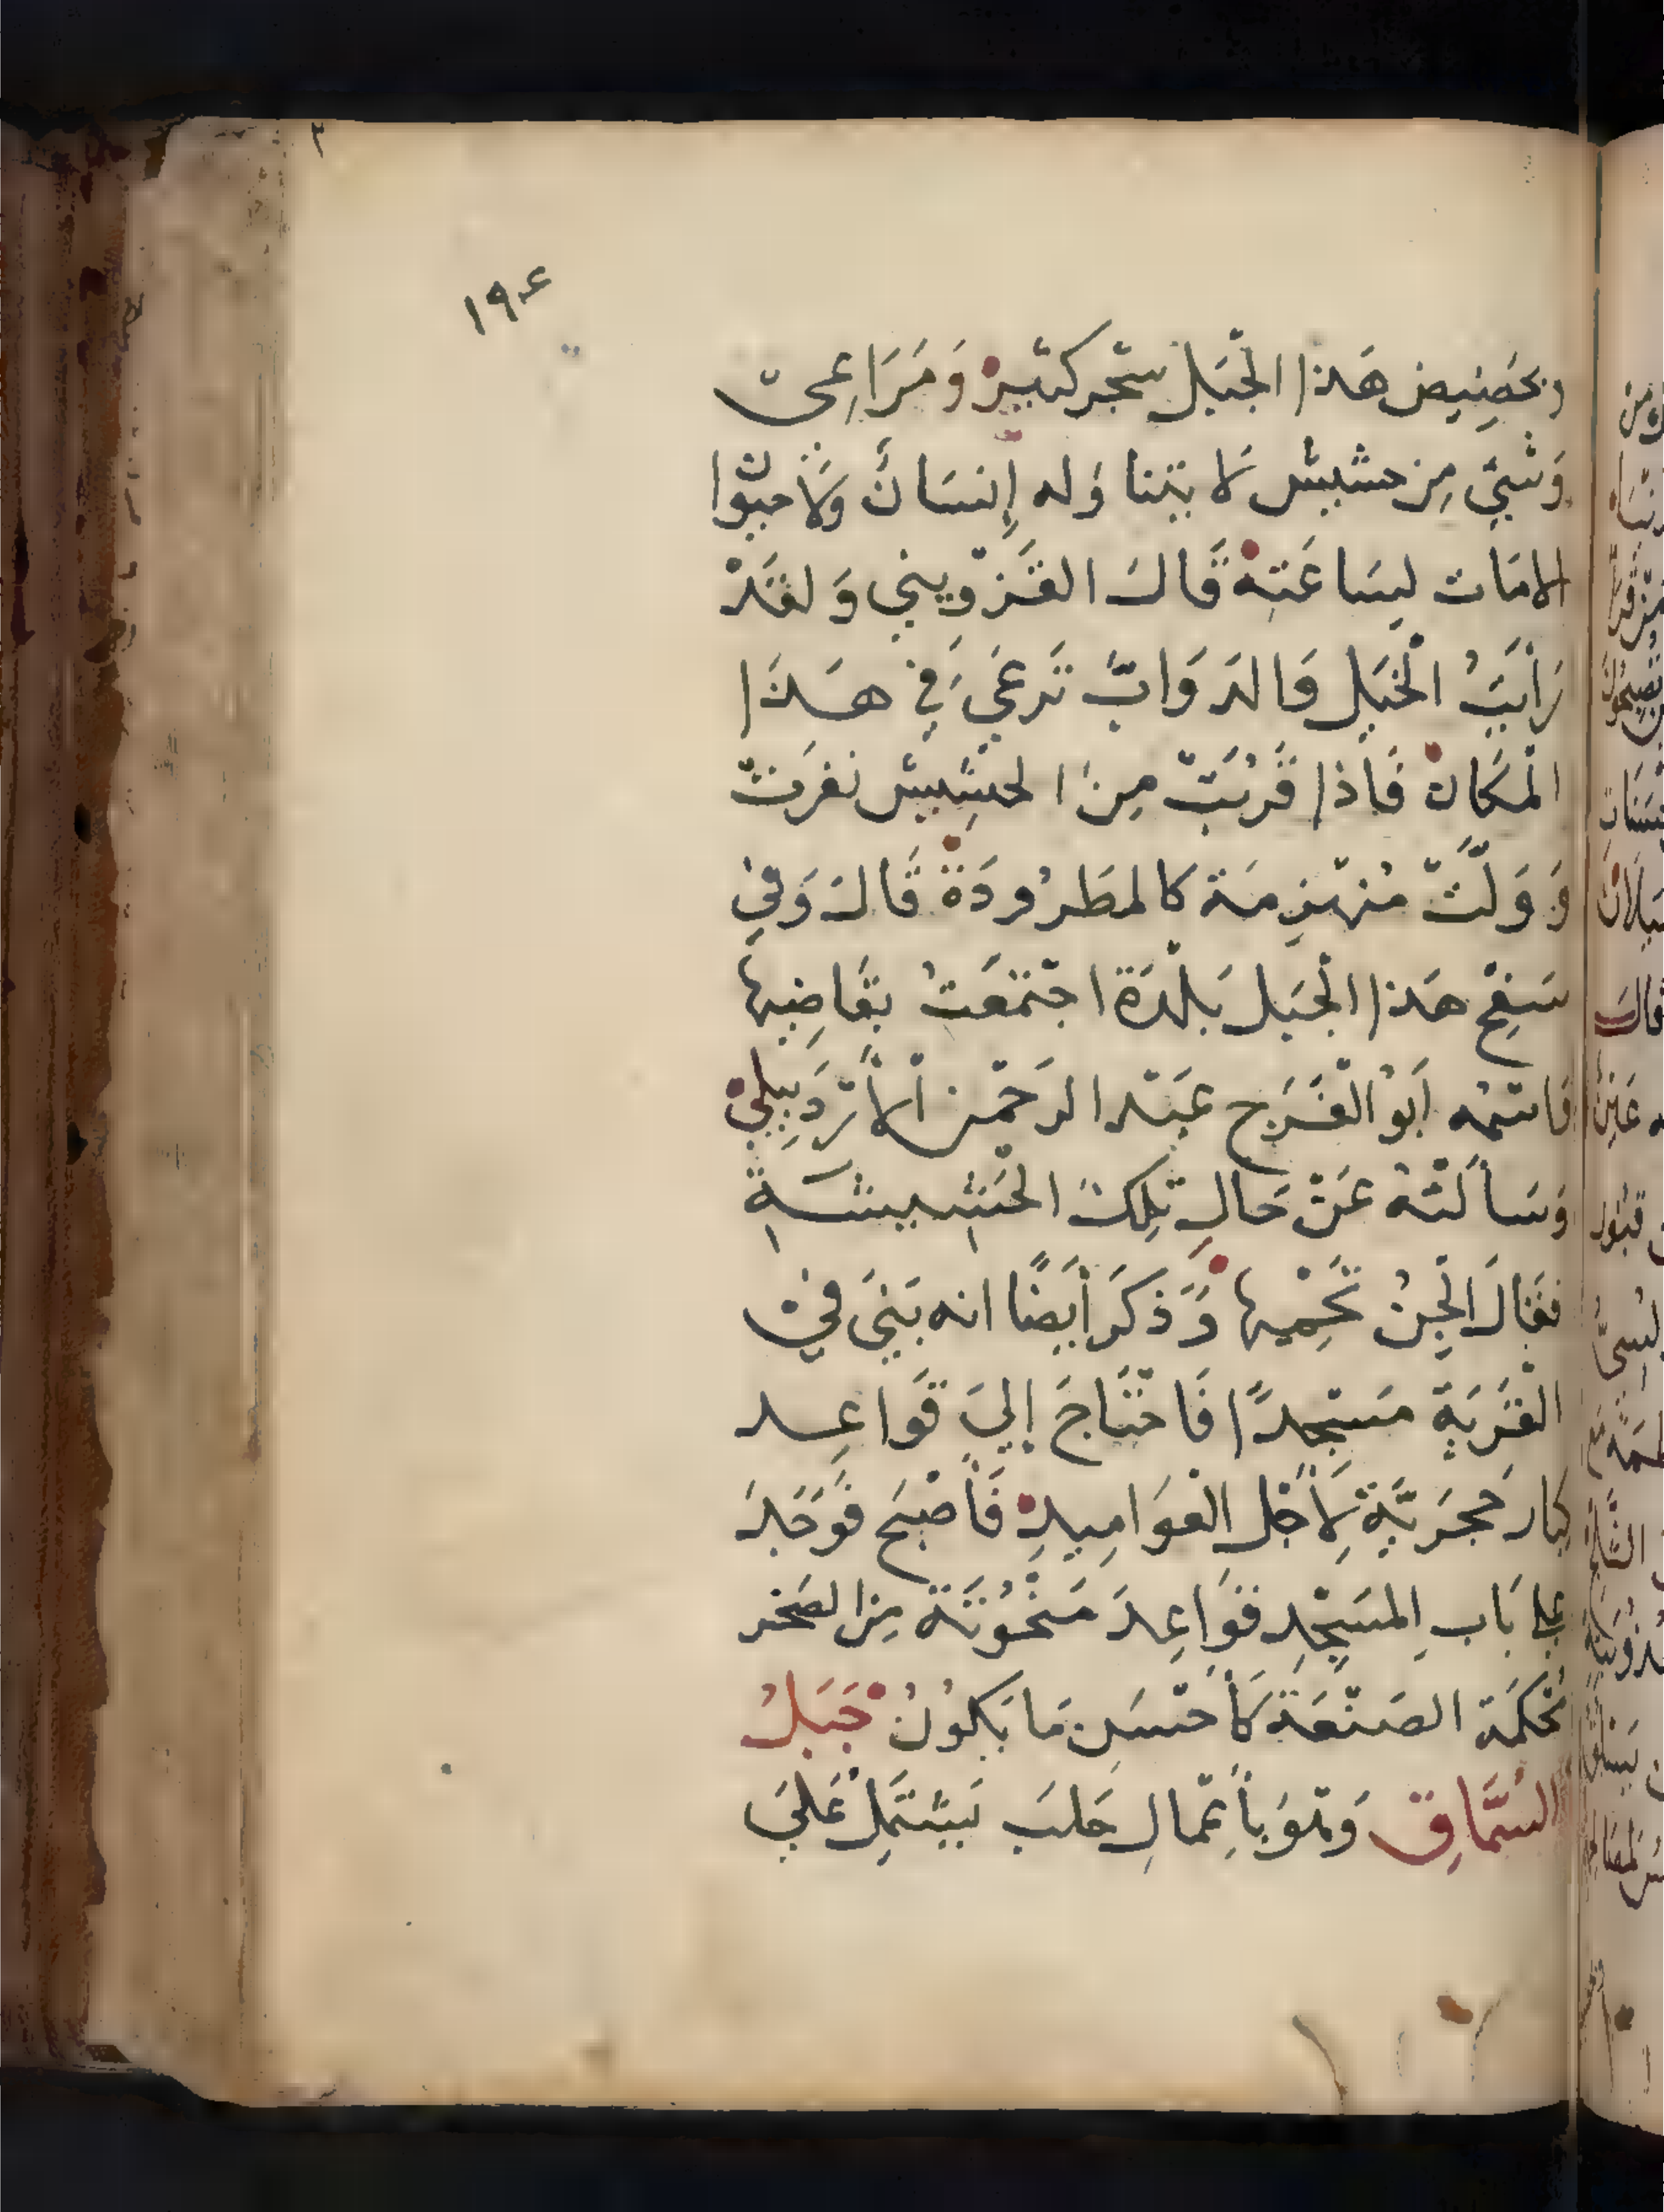 ١٩٤
وبحَضِيضِ هَذا الجَبَل شجر كثير وَمَرَاعِى
وَشَىءٌ مِن حشيش لَا يتناوَله إِنسَانٌ وَلَا حيوان
الا مَات لِسَاعَتِهْ قَالَ القَزْوِينِي وَلَقَدْ
رَأَيتُ الْخَيلَ وَالدَوَابَّ تَرعَى فِي هَذَا
الْمَكَانْ فَاذا قَرُبَتْ مِنَ الحَشِيش نفرَتْ
وَوَلَّتْ مُنهَزِمَة كالمطرُودَةْ قَالَ وَفِي
سَفحِ هَذا الْجَبَل بَلْدَة اجْتَمَعتُ بقَاضِيها
وَاسْمُه أَبُو الْفَرَج عَبْد الرَحْمن الْأَرْدَبِيلي
وَسَأَلتُهُ عَنْ حَالِ تِلكَ الْحَشِيشَةِ
فقَالَ الْجِنُ تَحْمِيها وَذكَرَ أَيضًا انه بَنَى فِي
الْقَرْيَةِ مَسْجِدًا فَاحْتَاجَ إِلَى قَوَاعِد
كِبَار حَجَرِيَّةٍ لِأَجْلِ الْعَوَامِيدِ فَأَصْبَح فَوَجَدَ
عَلَى بَابِ المسْجِدِ قوَاعِدَ مَنْحُوتَة مِن الصَخر
مُحْكَمَة الصَنْعَة كَأَحْسَنِ مَا يَكُونُ جَبَلُ
السُمَّاقِ وَهُوَ بأَعْمَالِ حَلبَ يَشْتَمِلُ عَلَى